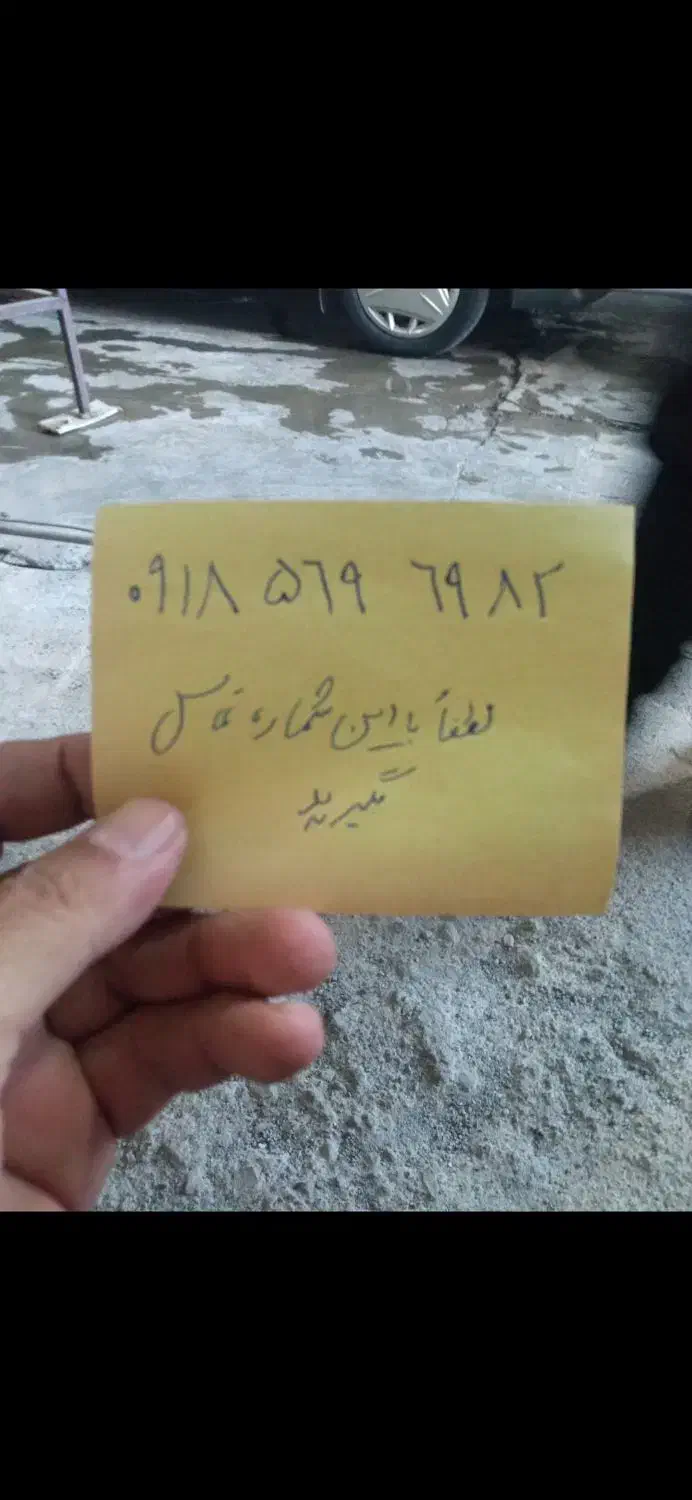 ۰۹۱۸ ۵۶۹ ۶۹۸۲
لطفاً با این شماره تماس
بگیرید